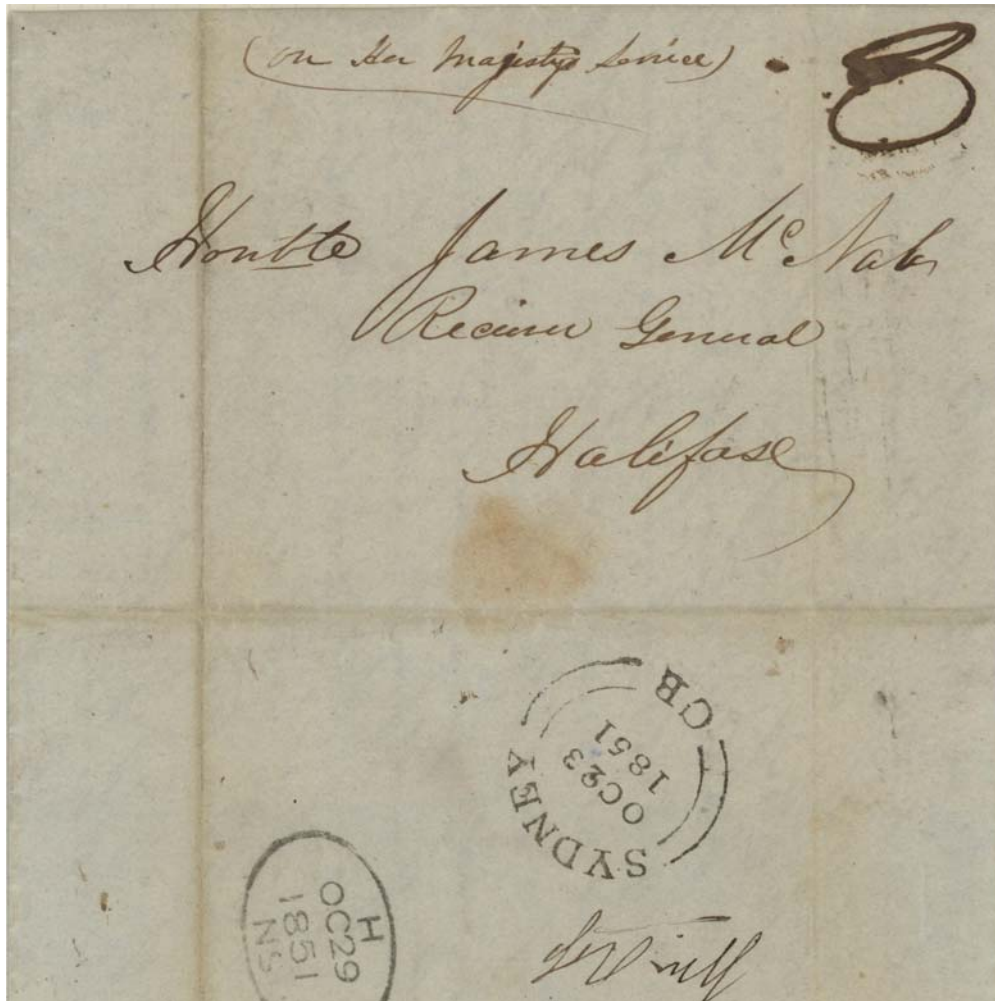 (on Her Majestys Service)
8
Honble James McNab
Receiver General
Halifax
SYDNEY CB
OC23
1851
H
OC29
1851
NS